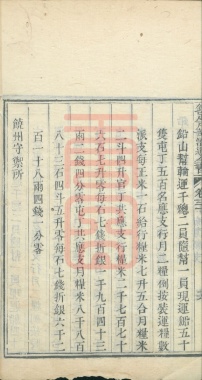 鉛山幫輪運千總二員隨幫一員現運船五十
隻屯丁五百名每丁應支行月二糧例按裝運糧數
派支每正米一石給行糧米七升五合月糧米
二斗四升官丁共應支行糧米二千七百七十
六石七升零每石七錢折銀一千九百四十三
兩二錢四分零屯丁共應支月糧米八千八百
八十三石四斗五升零每石七錢折銀六千二
百一十八兩四錢一分零
饒州守禦所